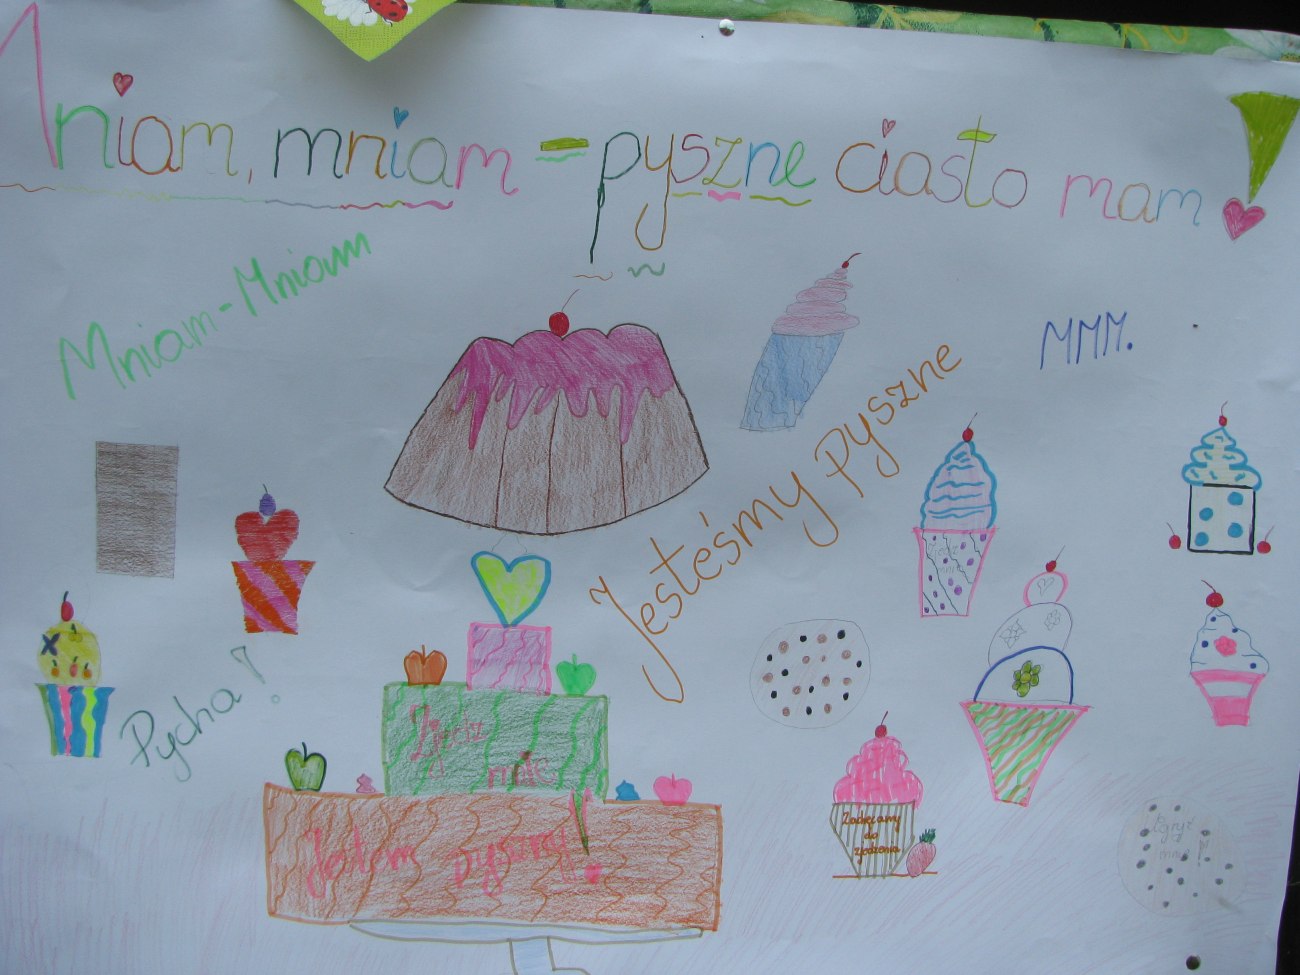 Mniam, mniam - pyszne ciasto mam!
Mniam-Mniam
MMM.
Jesteśmy pyszne
Pycha!
Zjedz
mnie!
Jestem pyszny!!!
Zachęcamy
do
zjedzenia
mnie!